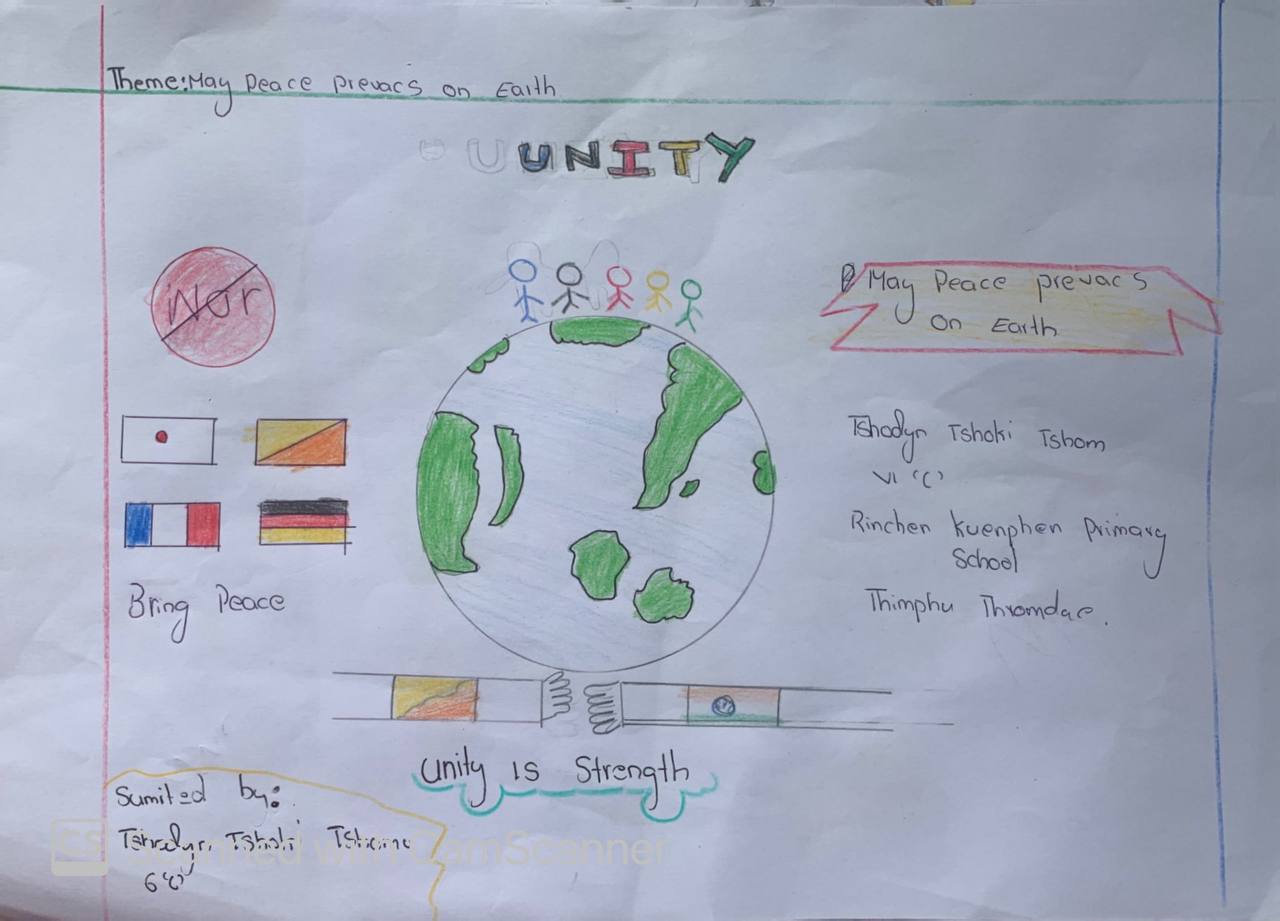 Theme: May Peace prevacs on Earth
UNITY
War
May Peace prevacs
on Earth
Tshodyn Tshoki Tshom
VI 'C'
Rinchen Kuenphen Primary
School
Thimphu Thromdae.
Bring Peace
Unity is Strength
Sumited by:
Tshoki
6 'C'
CS Scanned with CamScanner